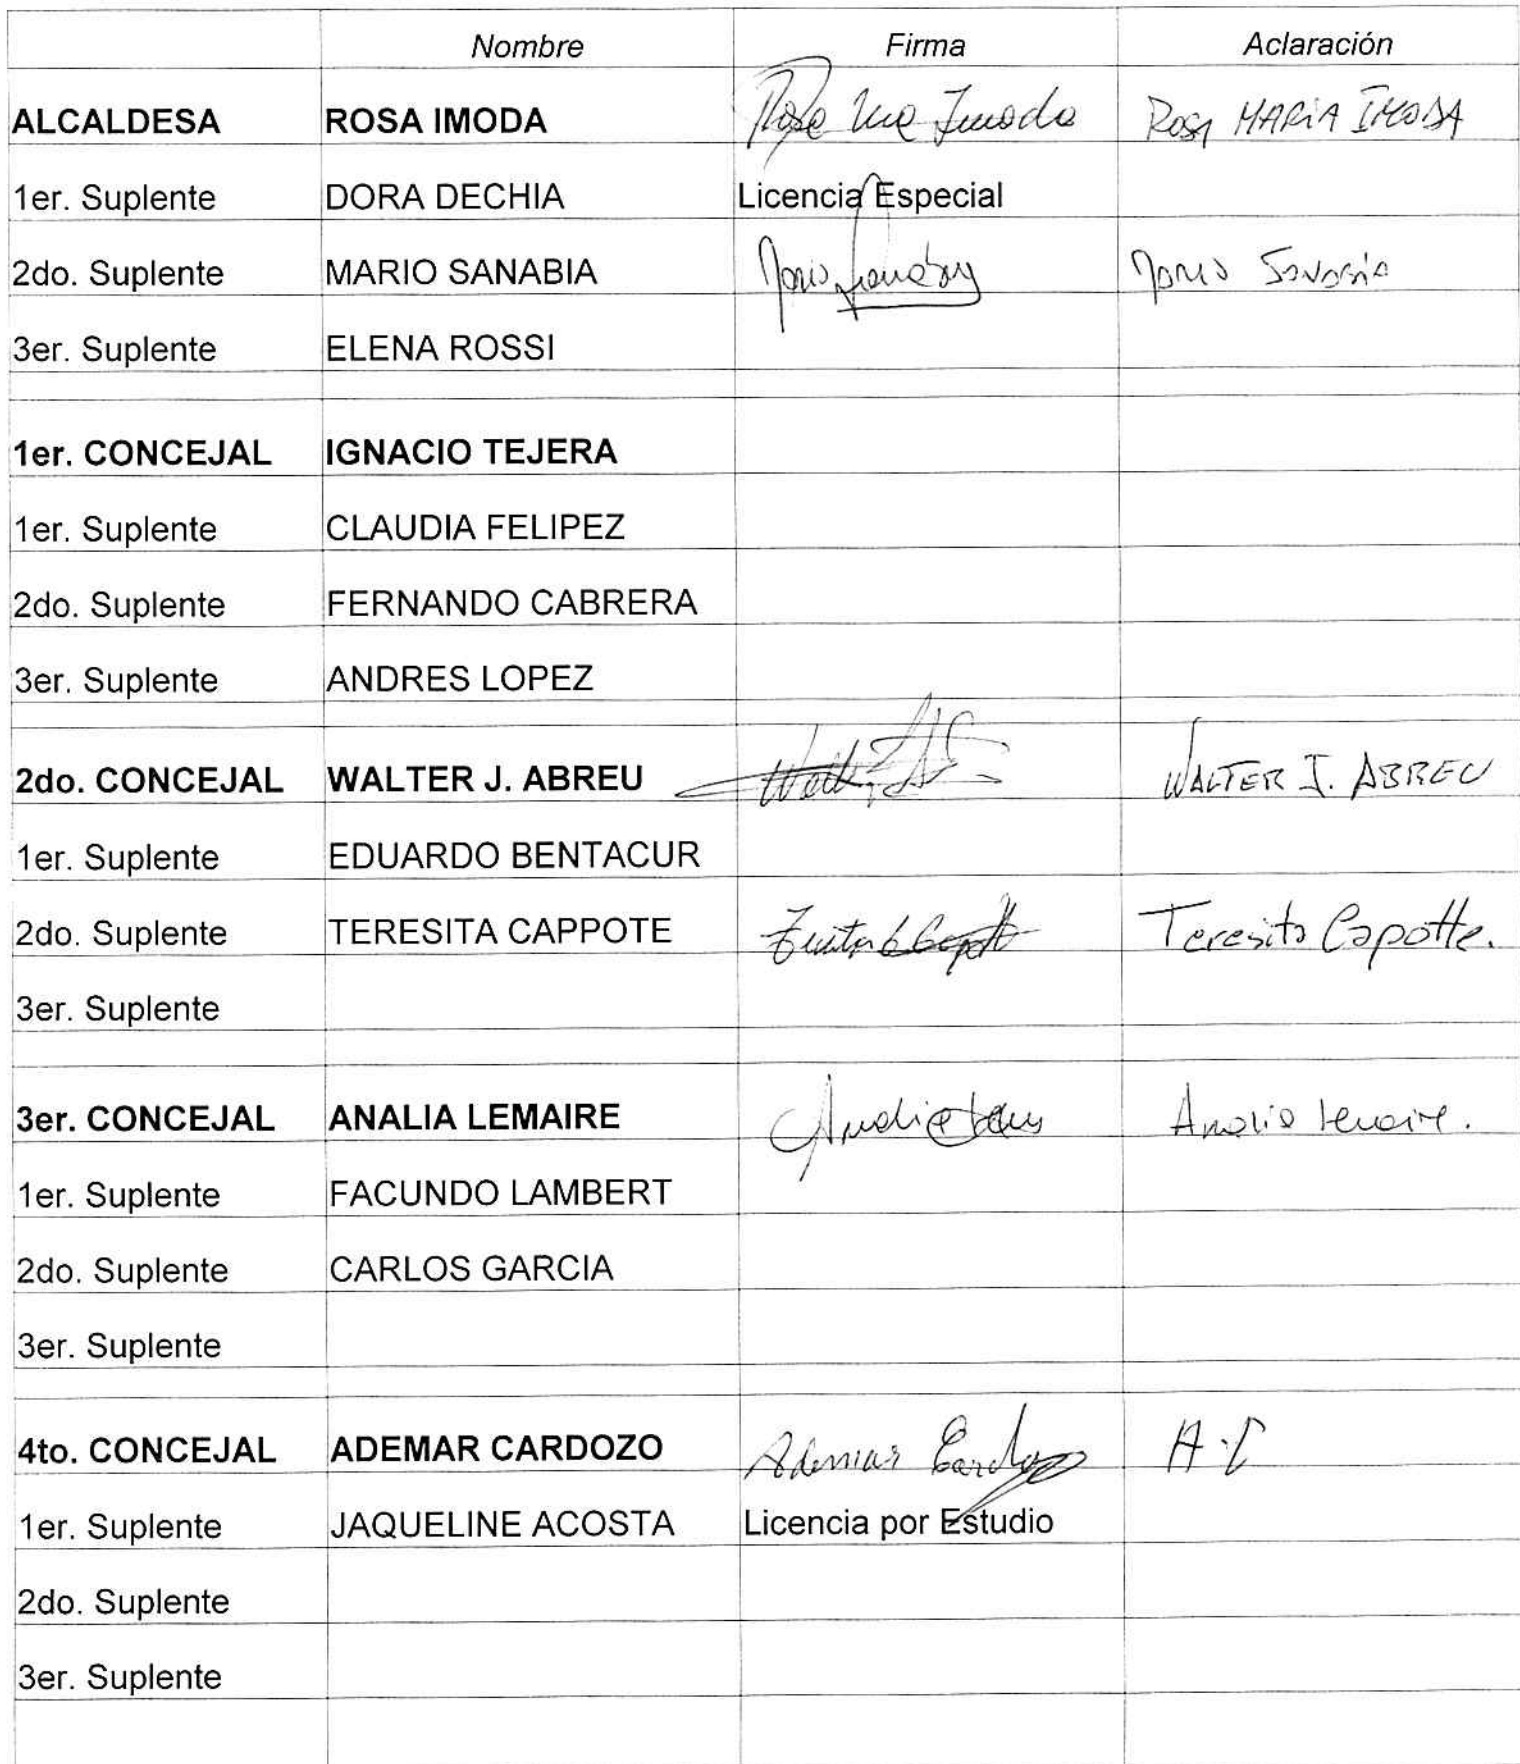 Nombre Firma Aclaración
ALCALDESA ROSA IMODA Rosa Ma Imoda Rosa MARIA IMODA
1er. Suplente DORA DECHIA Licencia Especial
2do. Suplente MARIO SANABIA Mario Sanabia Mario Sanabia
3er. Suplente ELENA ROSSI
1er. CONCEJAL IGNACIO TEJERA
1er. Suplente CLAUDIA FELIPEZ
2do. Suplente FERNANDO CABRERA
3er. Suplente ANDRES LOPEZ
2do. CONCEJAL WALTER J. ABREU WALTER J. ABREU
1er. Suplente EDUARDO BENTACUR
2do. Suplente TERESITA CAPPOTE Teresita Capotte.
3er. Suplente
3er. CONCEJAL ANALIA LEMAIRE Analia Lemaire.
1er. Suplente FACUNDO LAMBERT
2do. Suplente CARLOS GARCIA
3er. Suplente
4to. CONCEJAL ADEMAR CARDOZO Ademar Cardozo A.C
1er. Suplente JAQUELINE ACOSTA Licencia por Estudio
2do. Suplente
3er. Suplente